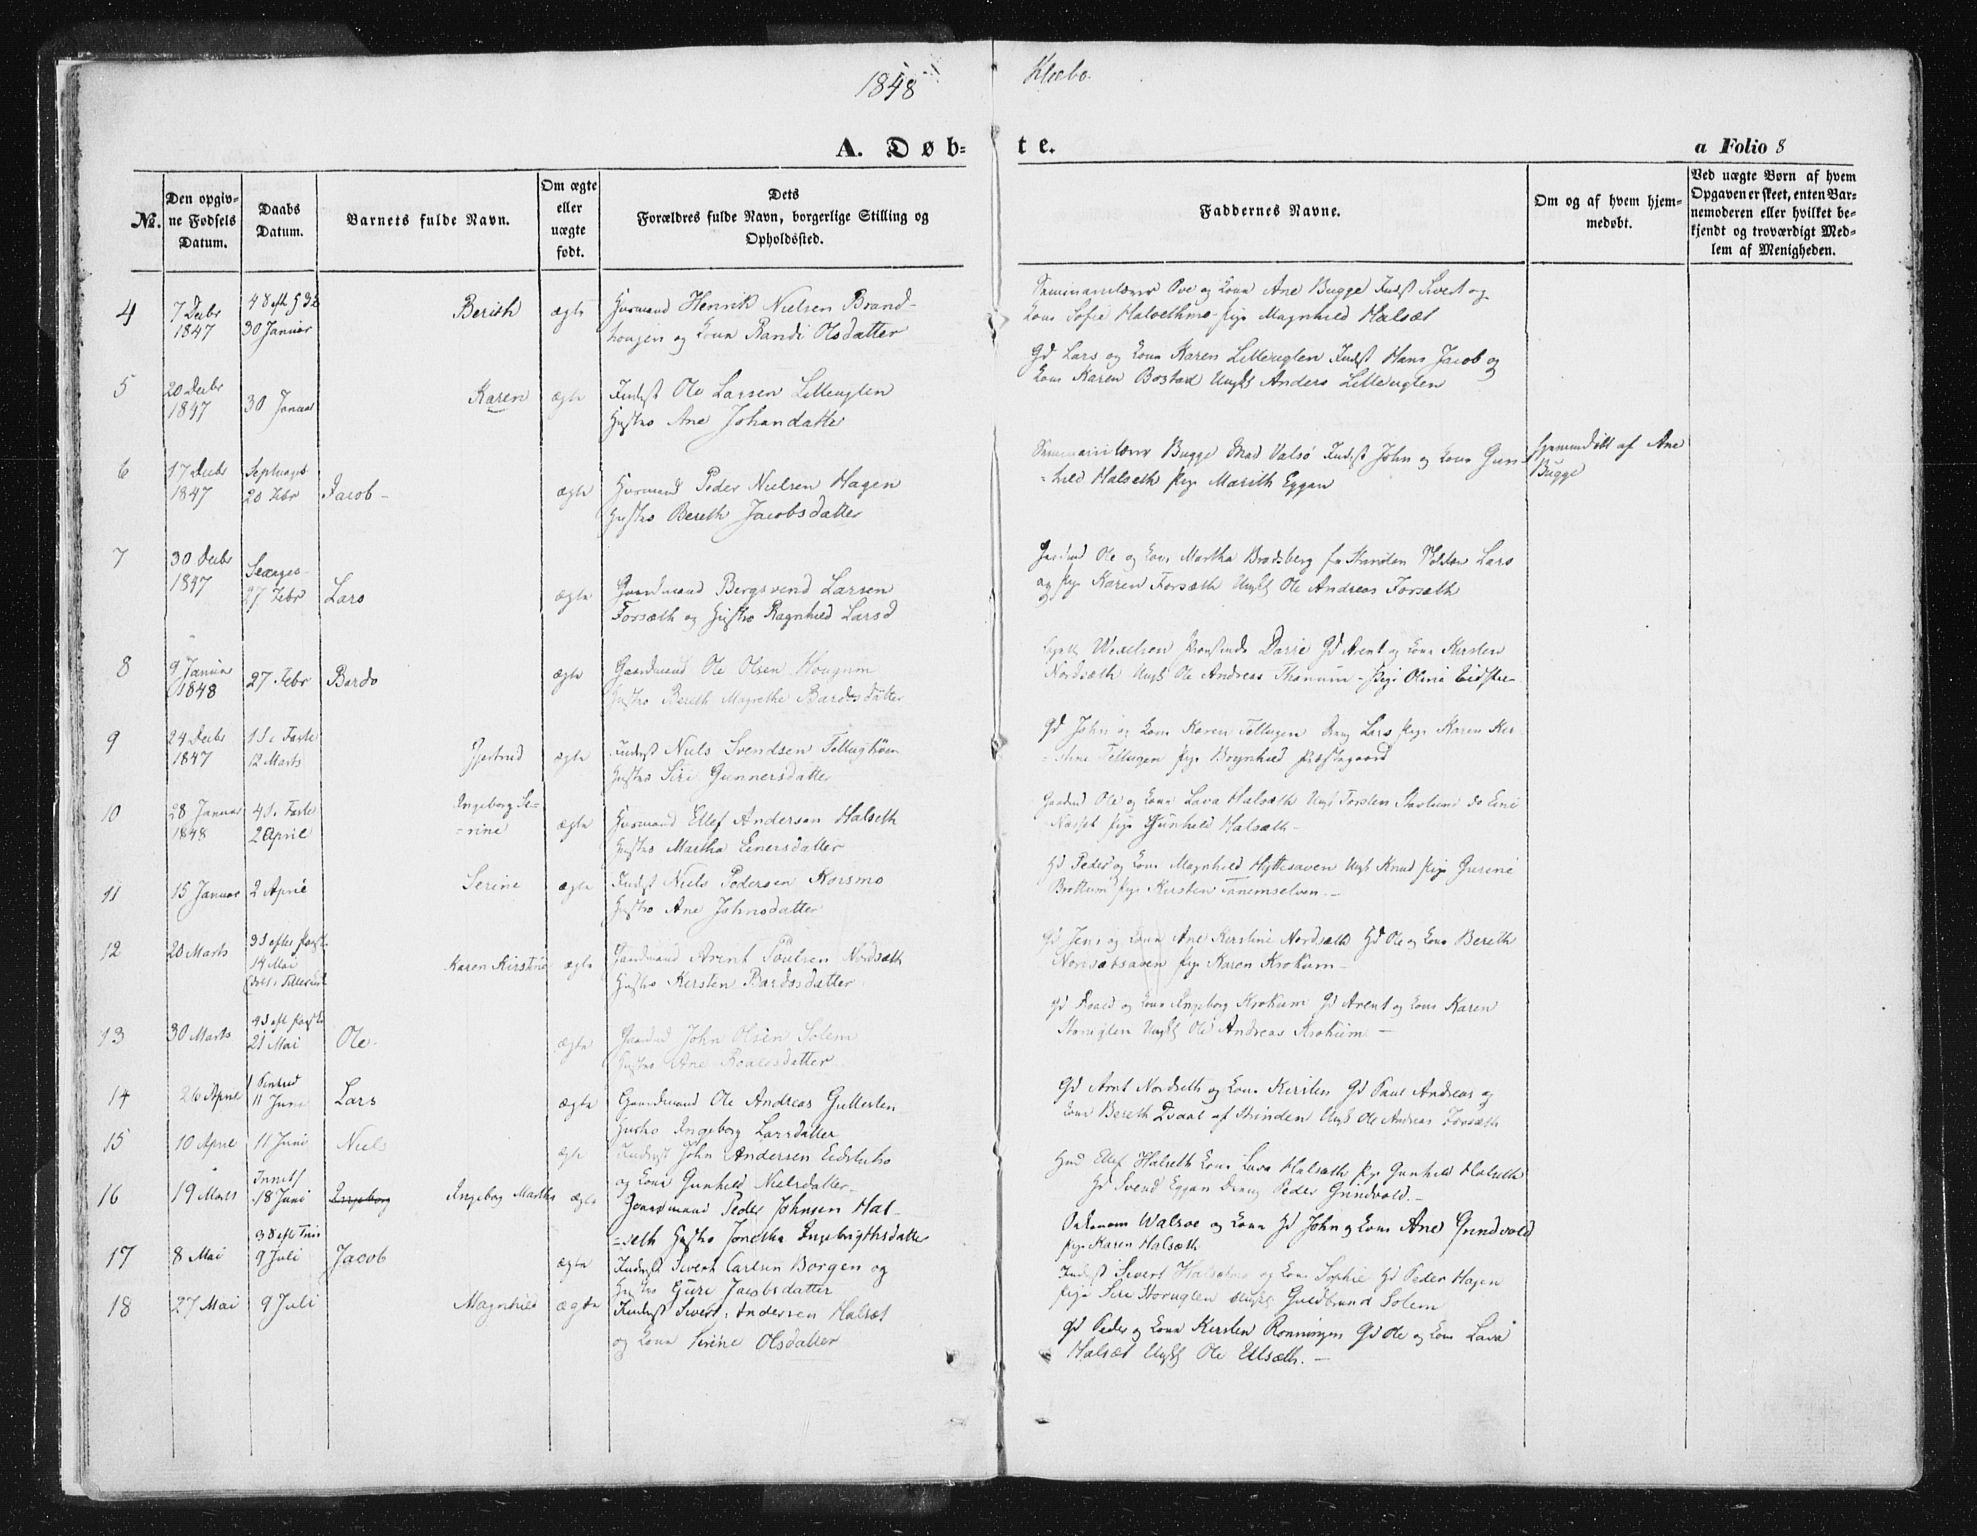 1848
Klæbo
A. Døb-
te.
a Folio 8
No.
Den opgivne Fødsels Datum.
Daabs Datum.
Barnets fulde Navn.
Om ægte eller uægte født.
Dets Forældres fulde Navn, borgerlige Stilling og Opholdssted.
Faddernes Navne.
Om og af hvem hjemmedøbt.
Ved uægte Børn af hvem Opgaven er skeet, enten Barnemoderen eller hvilket bekjendt og troværdigt Medlem af Menigheden.
4 7 Decbr 1847 30 Januar Berith ægte
Huusmand Henrik Nielsen Brand-
hougen og Kone Randi Olsdatter
Ove og Kone Ane Bugge Inderst Sivert og
Kone Sofie Halsethmo Pige Magnhild Halsæt
5 20 Decbr 1847 30 Januar Karen ægte
Inderst Ole Larsen Lilleuglen
Hustro Ane Johandatter
Gd Lars og Kone Karen Lilleuglen Inderst Hans Jacob og
Kone Karen Bostad Ungk Anders Lilleuglen
6 17 Decbr 1847 20 Febr Jacob ægte
Huusmand Peder Nielsen Hagen
Hustro Bereth Jacobsdatter
Bugge Mad Valsø Inderst John og Kone Gun-
=hild Halseth Pige Marith Eggan
Hjemmedøbt af Ane
Bugge
7 30 Decbr 1847 27 Febr Lars ægte
Gaardmand Bergsvend Larsen
Forsæth og Hustro Ragnhild Larsd
Ole og Kone Martha Brodsberg fra Strinden Lars
og Pige Karen Forsæth Ungk Ole Andreas Forsæth
8 9 Januar 1848 27 Febr Bardo ægte
Gaardmand Ole Olsen Hougum
Hustro Bereth Magrethe Bardosdatter
Wexelsen Dorre Gd Arent og Kone Kirsten
Nordsæth Ungk Ole Andreas Thanum Pige Oline
9 24 Decbr 1847 1 S i Faste 12 Marts Gjertrud ægte
Inderst Niels Svendsen
Hustro Siri Gunnersdatter
Gd John og Kone Karen Tellugen Dreng Lars Pige Karen Kir-
=stine Tellugen Pige Brynhild Præstegaard
10 28 Januar 1848 4 S. i Faste 2 April Ingeborg Se-
=rine ægte
Huusmand Ellef Anderson Halseth
Hustro Martha Einersdatter
Ole og Kone Lava Halsæth Ungk Torsten
Pige Gunhild Halsæth
11 15 Januar 2 April Serine ægte
Inderst Niels Pedersen Korsmo
Hustro Ane Johnsdatter
Hd Peder og Kone Magnhild Hyttesaven Ungk Knud Pige Gurine
Brøttum Pige Kirsten Tanemselven
12 20 Marts 3 S efter Paaske 14 Mai Karen Kirstine ægte
Gaardmand Arent Poulsen Nordsæth
Hustro Kirsten Bardosdatter
Gd Jens og Kone Ane Kirstine Nordsæth Hd Ole og Kone Bereth
Nordsætsaven Pige Karen Krokum
13 30 Marts 4 S eft Paaske 21 Mai Ole ægte
Gaardmd John Olsen Solem
Hustro Ane Roaldsdatter
Gd Roald og Kone Ingeborg Krokum Gd Arent og Kone Karen
Storuglen Ungk Ole Andreas Krokum
14 26 April 11 Juni Lars ægte
Gaardmand Ole Andreas Gullerlen
Hustro Ingeborg Larsdatter
Gd Arnt Nordseth og Kone Kirsten Gd Paul Andreas og
Kone Bereth af Strinden Ungk Ole Andreas Forsæth
15 10 April 11 Juni Niels ægte
Inderst John Andersen Eidstuhs
og Kone Gunhild Nielsdatter
Hmd Ellef Halseth Kone Lava Halsæth Pige Gunhild Halseth
Gd Svend Eggan Dreng Peder Grindvold
16 19 Marts 18 Juni Ingeborg Martha ægte
Gaardmand Peder Johnsen Hal-
=seth Hustro Jonetha Ingebrigthsdatter
Walsøe og Kone Hd John og Kone Ane Grindvold
Pige Karen Halsæth
17 8 Mai 9 Juli Jacob ægte
Inderst Sivert Carlsen Borgen og
Hustro Guri Jacobsdatter
Inderst Sivert og Kone Sophie Hd Peder Hagen
Pige Siri Storuglen Ungk Guldbrand Solem
18 27 Mai 9 Juli Magnhild ægte
Inderst Sivert Andersen Halsæt
og Kone Serine Olsdatter
Gd Peder og Kone Kirsten Rønningen Gd Ole og Kone Lava
Halsæt Ungk Ole Ulsæth.